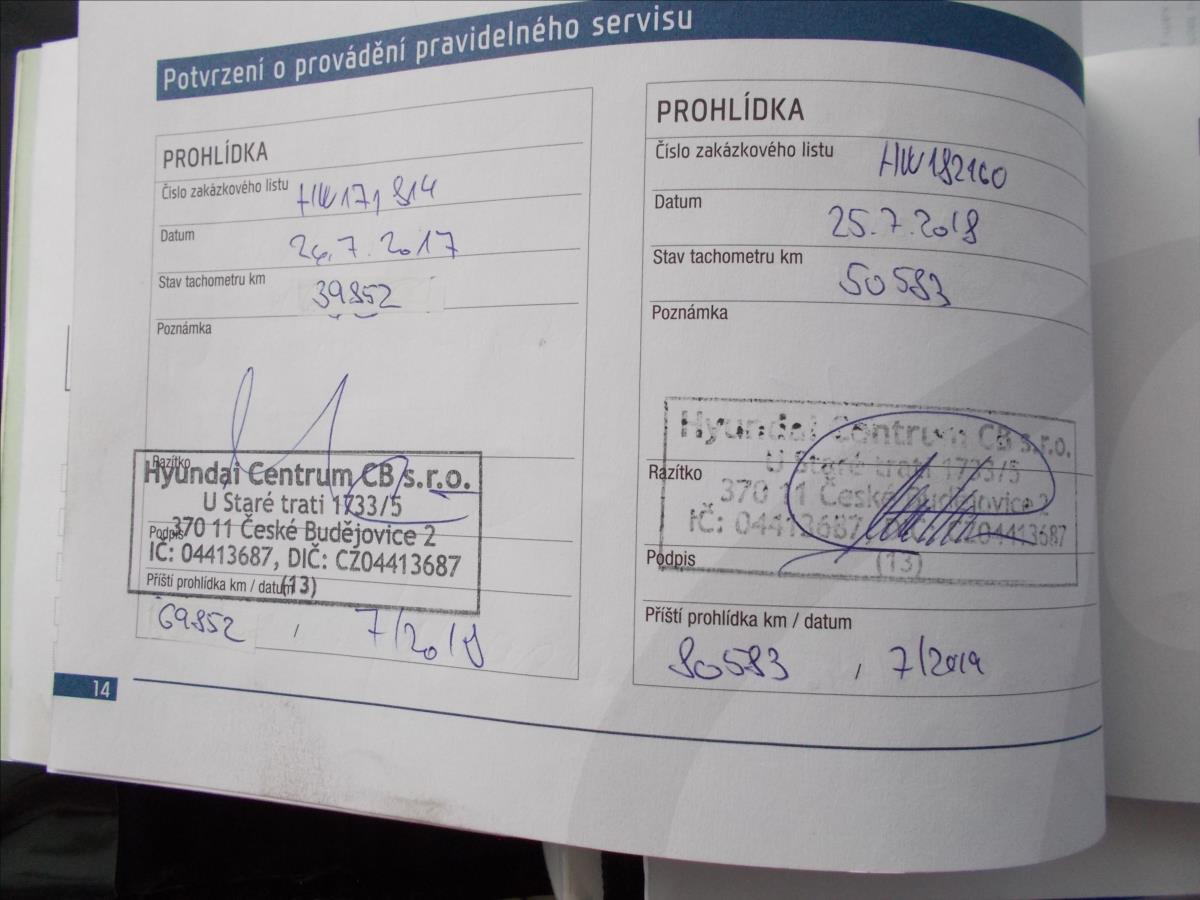 Potvrzení o provádění pravidelného servisu
PROHLÍDKA
Číslo zakázkového listu HW171814
Datum 26.7.2017
Stav tachometru km 39852
Poznámka
Razítko
Hyundai Centrum CB s.r.o.
U Staré trati 1733/5
370 11 České Budějovice 2
Podpis
IČ: 04413687, DIČ: CZ04413687
Příští prohlídka km / datum
(13)
69852 , 7/2018
PROHLÍDKA
Číslo zakázkového listu HW182160
Datum 25.7.2018
Stav tachometru km 50583
Poznámka
Hyundai Centrum CB s.r.o.
U Staré trati 1733/5
Razítko
370 11 České Budějovice 2
IČ: 04413687, DIČ: CZ04413687
Podpis
(13)
Příští prohlídka km / datum
80583 , 7/2019
14